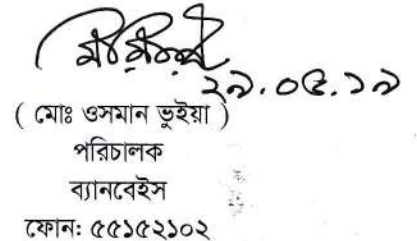 ২৯.০৫.১৯
( মোঃ ওসমান ভুইয়া )
পরিচালক
ব্যানবেইস
ফোন: ৫৫১৫২১০২